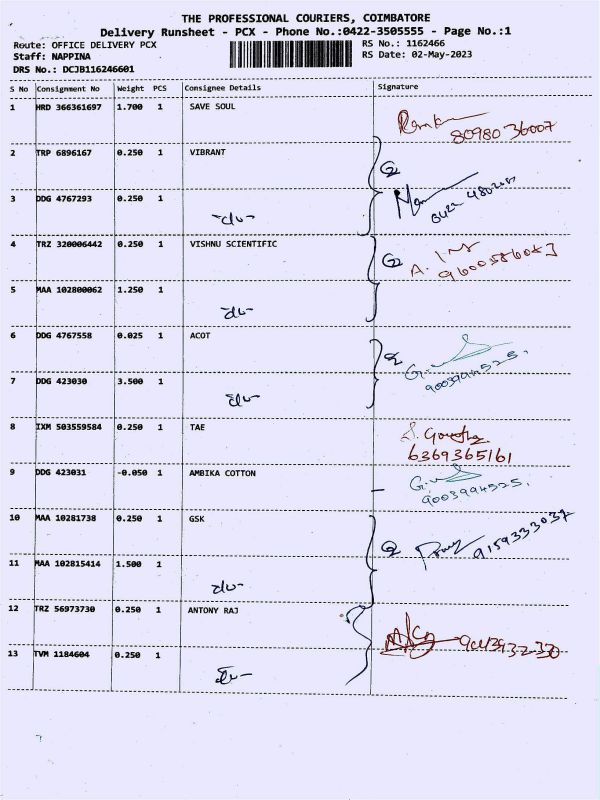 THE PROFESSIONAL COURIERS, COIMBATORE
Delivery Runsheet - PCX - Phone No.:0422-3505555 - Page No.:1
Route: OFFICE DELIVERY PCX RS No.: 1162466
Staff: NAPPINA RS Date: 02-May-2023
DRS No.: DCJB116246601
S No Consignment No Weight PCS Consignee Details Signature
1 HRD 366361697 1.700 1 SAVE SOUL
80980 36007
2 TRP 6896167 0.250 1 VIBRANT
3 DDG 4767293 0.250 1
4 TRZ 320006442 0.250 1 VISHNU SCIENTIFIC
5 MAA 102800062 1.250 1
6 DDG 4767558 0.025 1 ACOT
7 DDG 423030 3.500 1
8 IXM 503559584 0.250 1 TAE
6369365161
9 DDG 423031 -0.050 1 AMBIKA COTTON
9003994525.
10 MAA 10281738 0.250 1 GSK
9159333037
11 MAA 102815414 1.500 1
12 TRZ 56973730 0.250 1 ANTONY RAJ
13 TVM 1184604 0.250 1